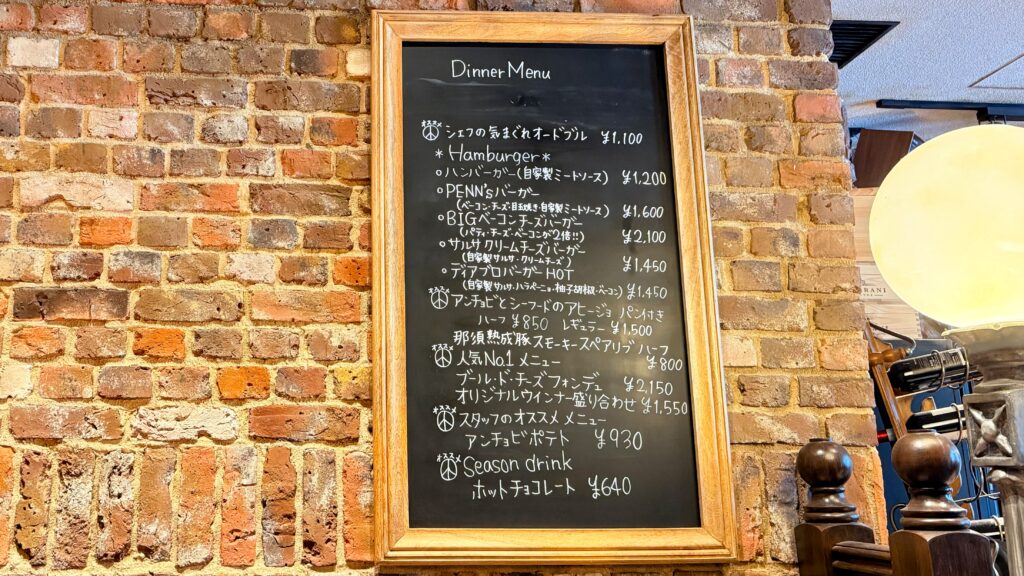 Dinner Menu
オススメ シェフの気まぐれオードブル ¥1,100
*Hamburger*
○ハンバーガー(自家製ミートソース) ¥1,200
○PENN'sバーガー
(ベーコン・チーズ・目玉焼き・自家製ミートソース) ¥1,600
○BIGベーコンチーズバーガー
(パティ・チーズ・ベーコンが2倍に) ¥2,100
○サルサクリームチーズバーガー
(自家製サルサ・クリームチーズ) ¥1,450
○ディアブロバーガーHOT
(自家製サルサ・ハラペーニョ・柚子胡椒・ベーコン) ¥1,450
オススメ アンチョビとシーフードのアヒージョ パン付き
ハーフ ¥850 レギュラー ¥1,500
那須熟成豚スモーキースペアリブ ハーフ
¥800
オススメ 人気No.1メニュー
ブール・ド・チーズフォンデュ ¥2,150
オリジナルウインナー盛り合わせ ¥1,550
オススメ スタッフのオススメメニュー
アンチョビポテト ¥930
オススメ Season drink
ホットチョコレート ¥640
RANI